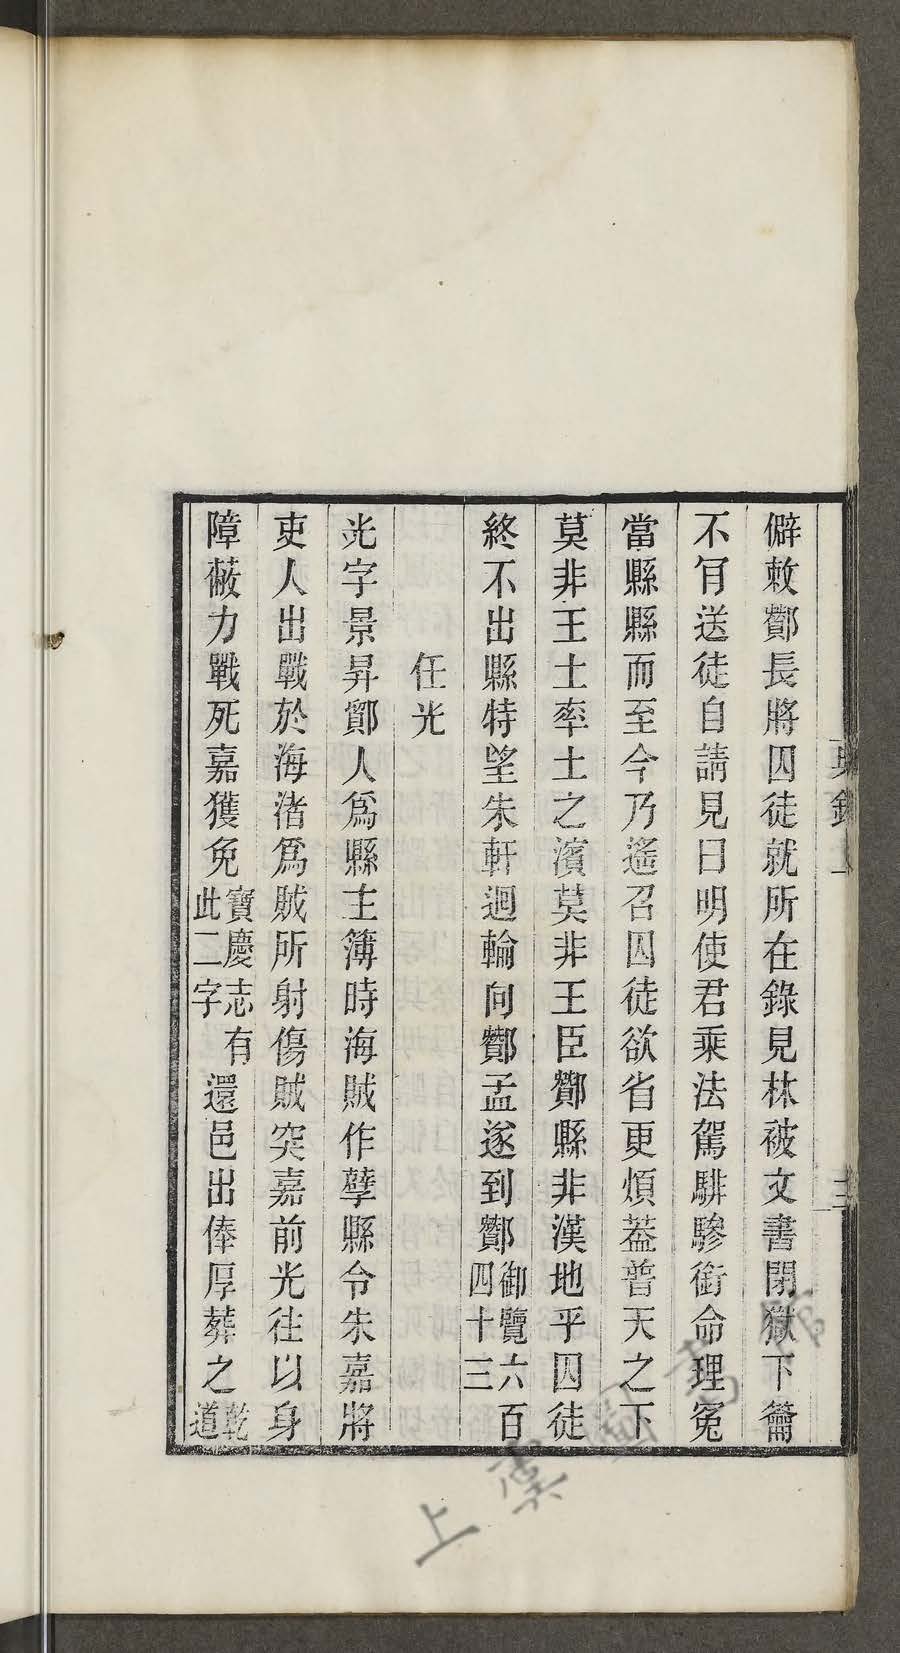 僻敕酇長將囚徒就所在錄見林被文書閉獄下籥
不肎送徒自請見曰明使君乘法駕騑驂銜命理冤
當縣縣而至今乃遙召囚徒欲省更煩蓋普天之下
莫非王土率土之濱莫非王臣酇縣非漢地乎囚徒
終不出縣特望朱軒迴輪向酇孟遂到酇御覽六百四十三
任光
光字景昇鄮人爲縣主簿時海賊作孽縣令朱嘉將
吏人出戰於海渚爲賊所射傷賊突嘉前光往以身
障蔽力戰死嘉獲免寶慶志有此二字還邑出俸厚葬之乾道